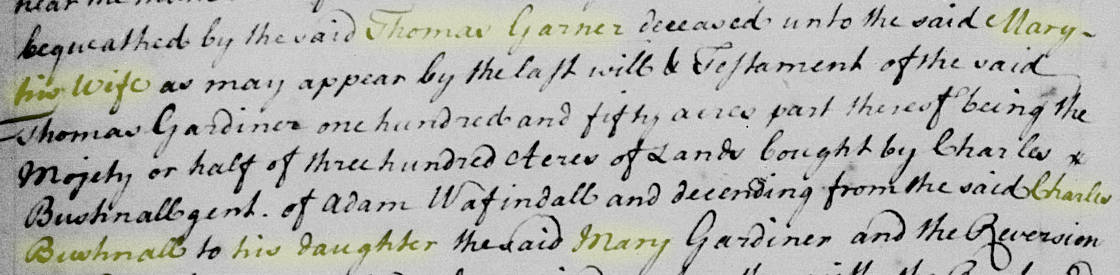 bequeathed by the said Thomas Garner deceased unto the said Mary
his Wife as may appear by the last will & Testament of the said
Thomas Gardiner one hundred and fifty acres part thereof being the
Mojety or half of three hundred Acres of Lands bought by Charles
Bushnall gent. of Adam Wafindall and decending from the said Charles
Bushnall to his daughter the said Mary Gardiner and the Reversion